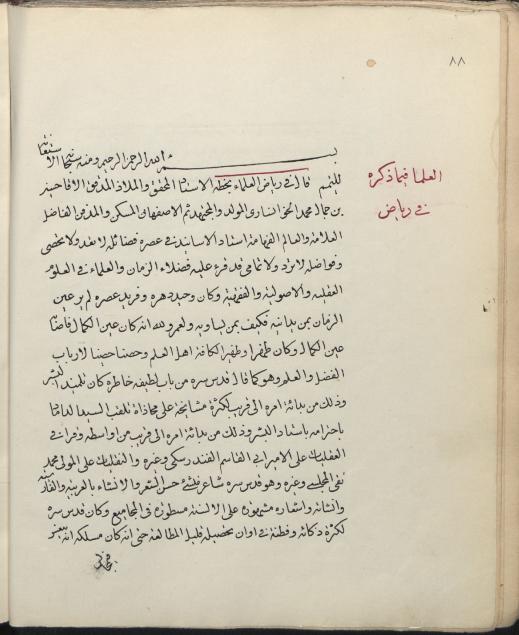 ٨٨
العلما فيما ذكره
في رياض
بسم الله الرحمن الرحيم ومنه نستعين
للتتميم قال في رياض العلماء بخطه الاستاد المحقق والملاذ المدقق الاقا حسين
بن جمال محمد الخوانساري المولد والمحتد ثم الاصفهاني المسكن والمدفن الفاضل
العلامة والعالم الفهامة استاد الاساتيد في عصره فضائله لا تعد ولا تحصى
وفواضله لا ترد ولا تمامى قد قرء عليه فضلاء الزمان والعلماء في العلوم
العقلية والاصولية والفقهية وكان وحيد دهره وفريد عصره لم ير عين
الزمان بمن يدانيه فكيف بمن يساويه ولعمر الله انه كان عين الكمال فاصابه
عين الكمال وكان ظهرا وظهيرا لكافة اهل العلم وحصنا حصينا لارباب
الفضل والعلم وهو كما قال قدس سره من باب لطيفه خاطره كان تلميذ البشر
وذلك من بدائة امره الى قريب لكثرة مشايخه على محاذاة تلقب السيد الداماد
باحترامه باستاد البشر وذلك من بدائة امره الى قريب من اواسطه وقرا في
العقليات على الامير ابي القاسم الفندرسكي وغيره والنقليات على المولى محمد
تقي المجلسي وغيره وهو قدس سره شاعر منشئ حسن الشعر والانشاء بالعربية والفارسية
وانشائه واشعاره مشهورة على الالسنة مسطورة في المجاميع وكان قدس سره
لكثرة ذكائه وفطنته في اوان تحصيله قليل المطالعة حتى انه كان مسلكه انه